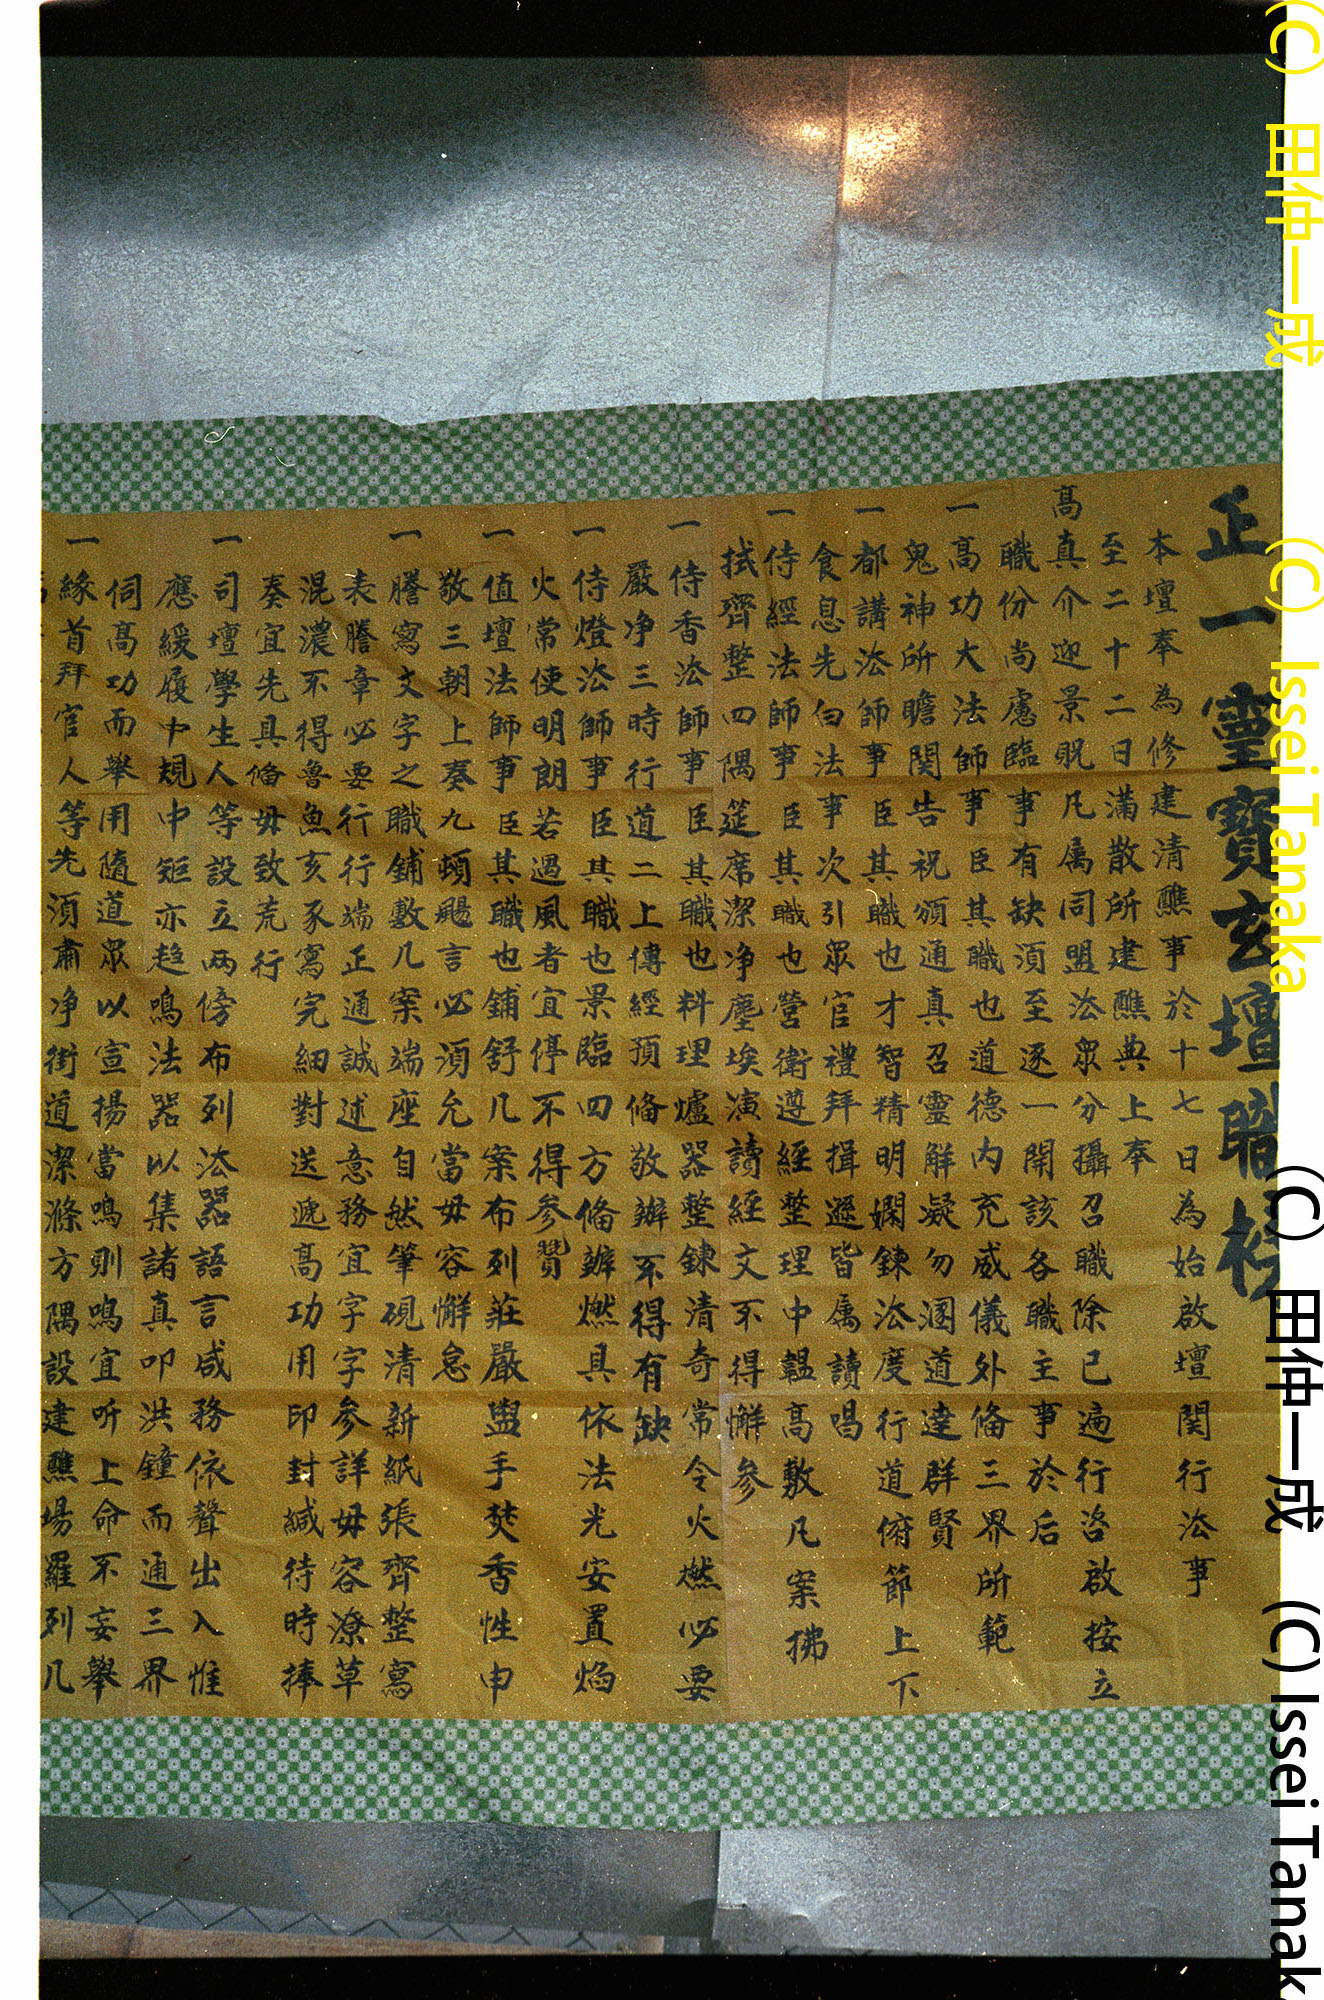 正一靈寶玄壇職榜
本壇奉為修建清醮事於十七日為始啟壇関行法事
至二十二日滿散所建醮典上奉
高真介迎景貺凡属同盟法衆分攝召職除已遍行咨啟按立
職份尚慮臨事有缺須至逐一開該各職主事於后
一高功大法師事臣其職也道德內充威儀外俻三界所範
鬼神所瞻関告祝頒通真召靈解凝勿溷道達群賢
一都講法師事臣其職也才智精明嫻錬法度行道俯節上下
食息先白法事次引眾官禮拜揖遜皆属讀唱
一侍經法師事臣其職也營衛遵經整理中韞高敷凡案拂
拭齊整四隅筵席潔净塵埃演讀經文不得懈参
一侍香法師事臣其職也料理爐器整錬清奇常令火燃必要
嚴净三時行道二上傳經預俻敬辦不得有缺
一侍燈法師事臣其職也景臨四方俻辦燃具依法光安置焰
火常使明朗若遇風者宜停不得参贊
一值壇法師事臣其職也鋪舒几案布列莊嚴盥手焚香性申
敬三朝上奏九頓颺言必須允當毋容懈怠
一謄寫文字之職鋪敷几案端座自然筆硯清新紙張齊整寫
表謄章必要行行端正通誠述意務宜字字参詳毋容潦草
混濃不得魯魚亥豕寫完細對送遞高功用印封緘待時捧
奏宜先具俻毋致荒行
一司壇學生人等設立兩傍布列法器語言咸務依聲出入惟
應緩履中規中矩亦趋鳴法器以集諸真叩洪鐘而通三界
伺高功而舉用隨道眾以宣揚當鳴則鳴宜听上命不妄舉
一緣首拜官人等先須肅净街道潔滌方隅設建醮場羅列几
(C) 田仲一成 (C) Issei Tanaka
(C) 田仲一成 (C) Issei Tanak